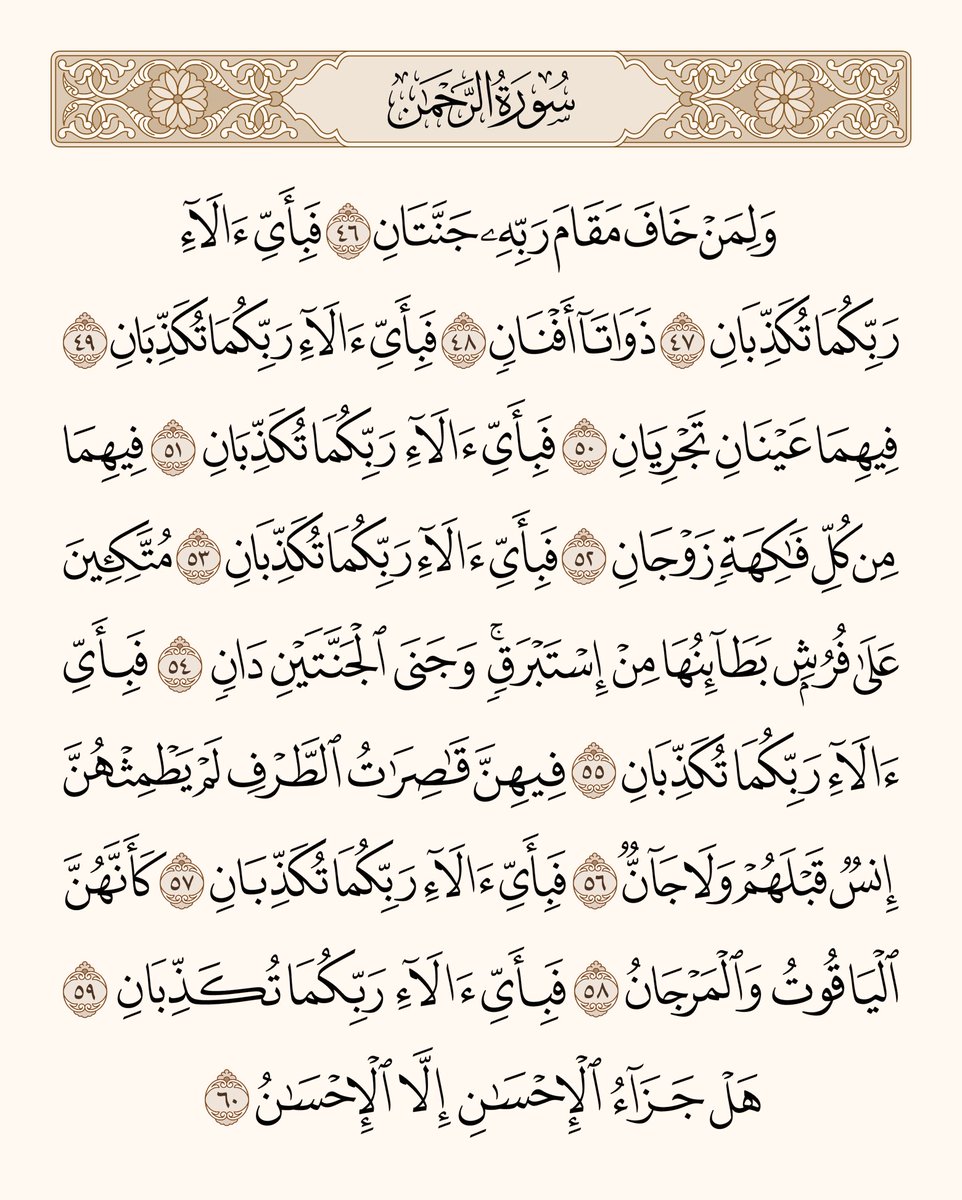 سُورَةُ الرَّحۡمَٰن
وَلِمَنۡ خَافَ مَقَامَ رَبِّهِۦ جَنَّتَانِ ٤٦ فَبِأَيِّ ءَالَآءِ
رَبِّكُمَا تُكَذِّبَانِ ٤٧ ذَوَاتَآ أَفۡنَانٖ ٤٨ فَبِأَيِّ ءَالَآءِ رَبِّكُمَا تُكَذِّبَانِ ٤٩
فِيهِمَا عَيۡنَانِ تَجۡرِيَانِ ٥٠ فَبِأَيِّ ءَالَآءِ رَبِّكُمَا تُكَذِّبَانِ ٥١ فِيهِمَا
مِن كُلِّ فَٰكِهَةٖ زَوۡجَانِ ٥٢ فَبِأَيِّ ءَالَآءِ رَبِّكُمَا تُكَذِّبَانِ ٥٣ مُتَّكِـِٔينَ
عَلَىٰ فُرُشِۭ بَطَآئِنُهَا مِنۡ إِسۡتَبۡرَقٖۚ وَجَنَى ٱلۡجَنَّتَيۡنِ دَانٖ ٥٤ فَبِأَيِّ
ءَالَآءِ رَبِّكُمَا تُكَذِّبَانِ ٥٥ فِيهِنَّ قَٰصِرَٰتُ ٱلطَّرۡفِ لَمۡ يَطۡمِثۡهُنَّ
إِنسٞ قَبۡلَهُمۡ وَلَا جَآنّٞ ٥٦ فَبِأَيِّ ءَالَآءِ رَبِّكُمَا تُكَذِّبَانِ ٥٧ كَأَنَّهُنَّ
ٱلۡيَاقُوتُ وَٱلۡمَرۡجَانُ ٥٨ فَبِأَيِّ ءَالَآءِ رَبِّكُمَا تُكَذِّبَانِ ٥٩
هَلۡ جَزَآءُ ٱلۡإِحۡسَٰنِ إِلَّا ٱلۡإِحۡسَٰنُ ٦٠